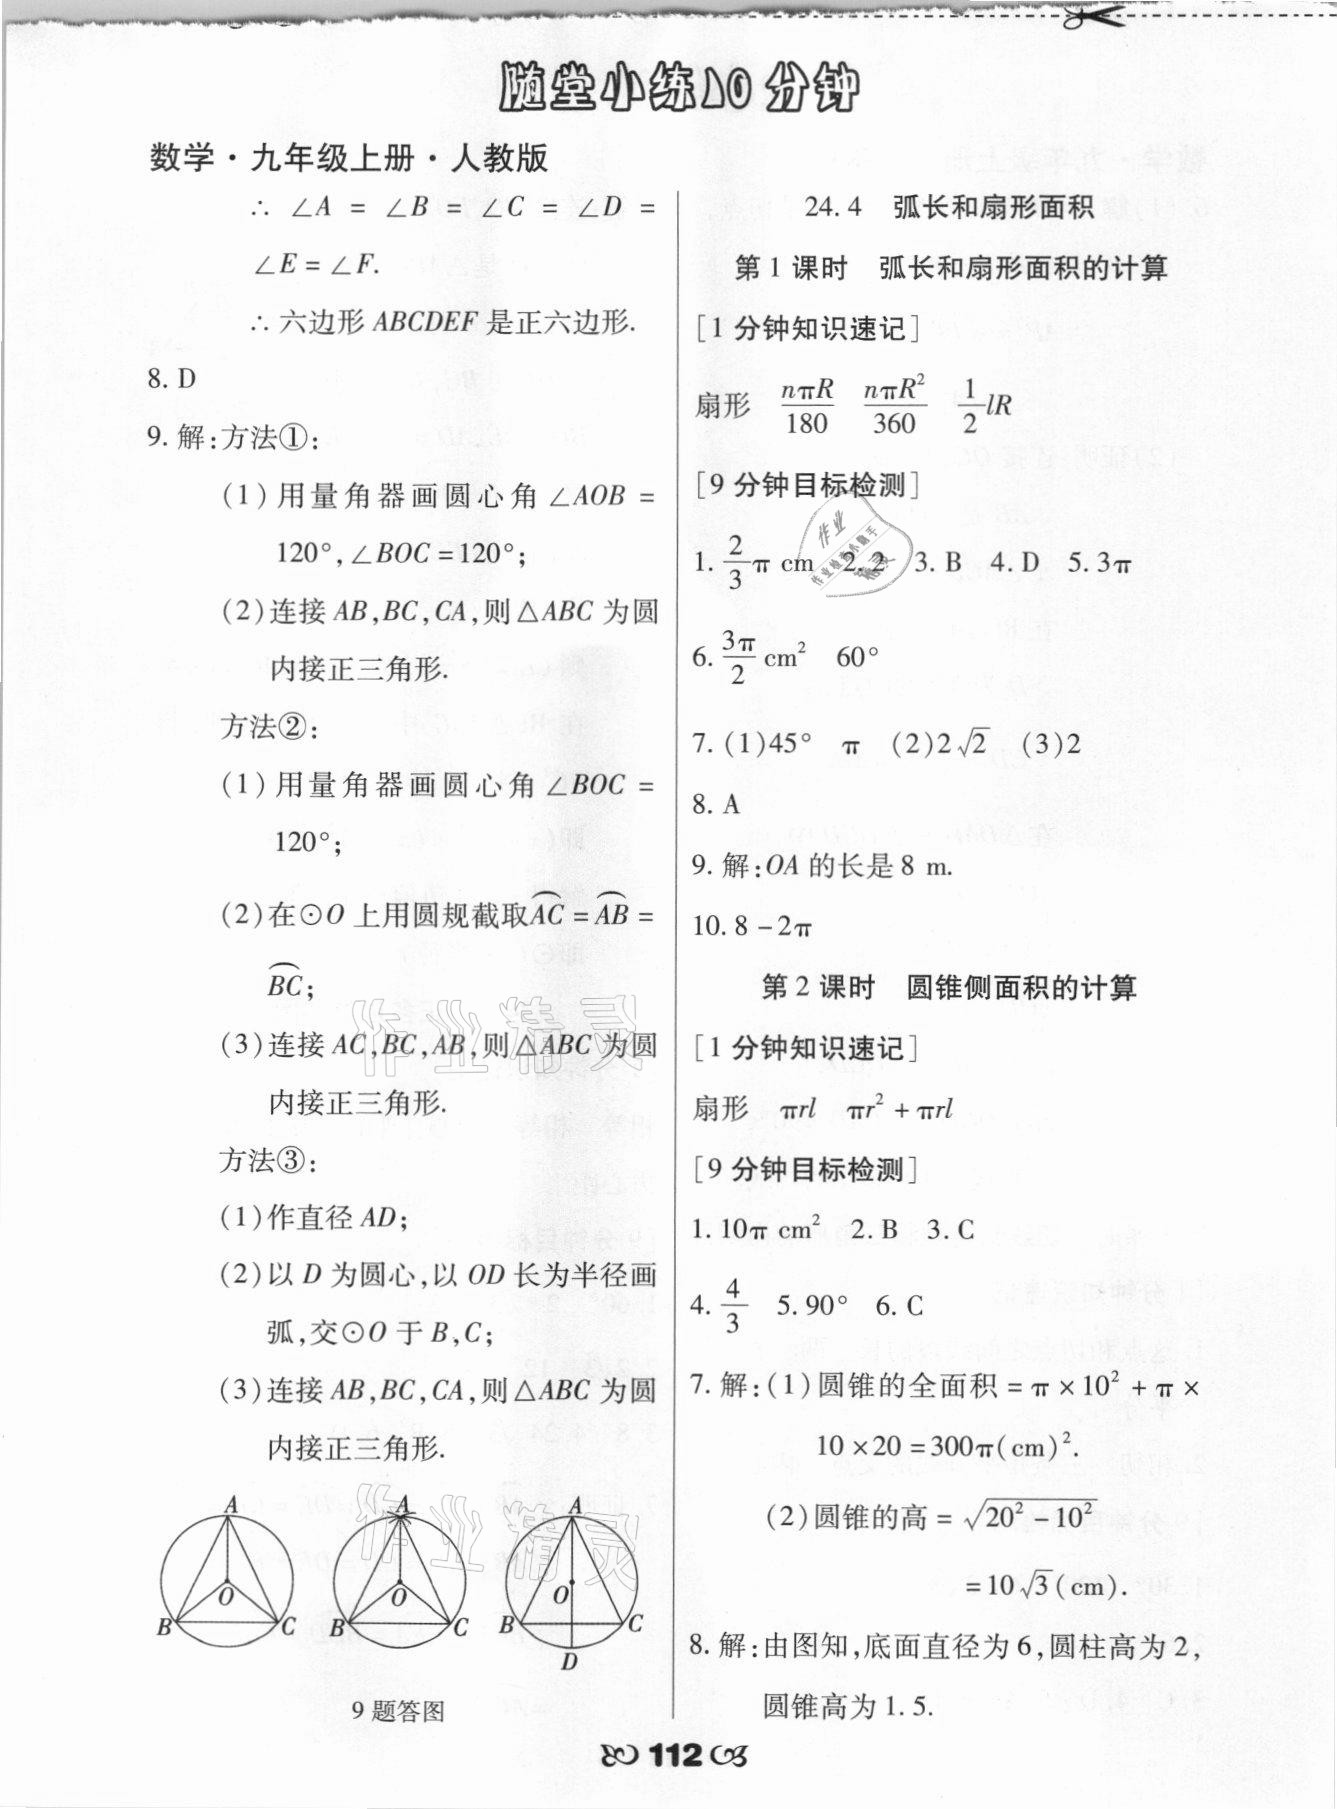 随堂小练10分钟
数学·九年级上册·人教版
∴ ∠A = ∠B = ∠C = ∠D =
∠E = ∠F.
∴ 六边形 ABCDEF 是正六边形.
8. D
9. 解:方法①:
(1)用量角器画圆心角∠AOB =
120°,∠BOC = 120°;
(2)连接 AB,BC,CA,则△ABC 为圆
内接正三角形.
方法②:
(1)用量角器画圆心角∠BOC =
120°;
(2)在⊙O 上用圆规截取⌒AC = ⌒AB =
⌒BC;
(3)连接 AC,BC,AB,则△ABC 为圆
内接正三角形.
方法③:
(1)作直径 AD;
(2)以 D 为圆心,以 OD 长为半径画
弧,交⊙O 于 B,C;
(3)连接 AB,BC,CA,则△ABC 为圆
内接正三角形.
A O B C
A O B C
A O B C D
9 题答图
24.4 弧长和扇形面积
第 1 课时 弧长和扇形面积的计算
[1 分钟知识速记]
扇形 nπR/180 nπR²/360 1/2 lR
[9 分钟目标检测]
1. 2/3 π cm 2. 2 3. B 4. D 5. 3π
6. 3π/2 cm² 60°
7. (1)45° π (2)2√2 (3)2
8. A
9. 解:OA 的长是 8 m.
10. 8 - 2π
第 2 课时 圆锥侧面积的计算
[1 分钟知识速记]
扇形 πrl πr² + πrl
[9 分钟目标检测]
1. 10π cm² 2. B 3. C
4. 4/3 5. 90° 6. C
7. 解:(1)圆锥的全面积 = π × 10² + π ×
10 × 20 = 300π(cm)².
(2)圆锥的高 = √(20² - 10²)
= 10√3(cm).
8. 解:由图知,底面直径为 6,圆柱高为 2,
圆锥高为 1. 5.
112
作业精灵
作业精灵
作业
作业检查小助手
精灵